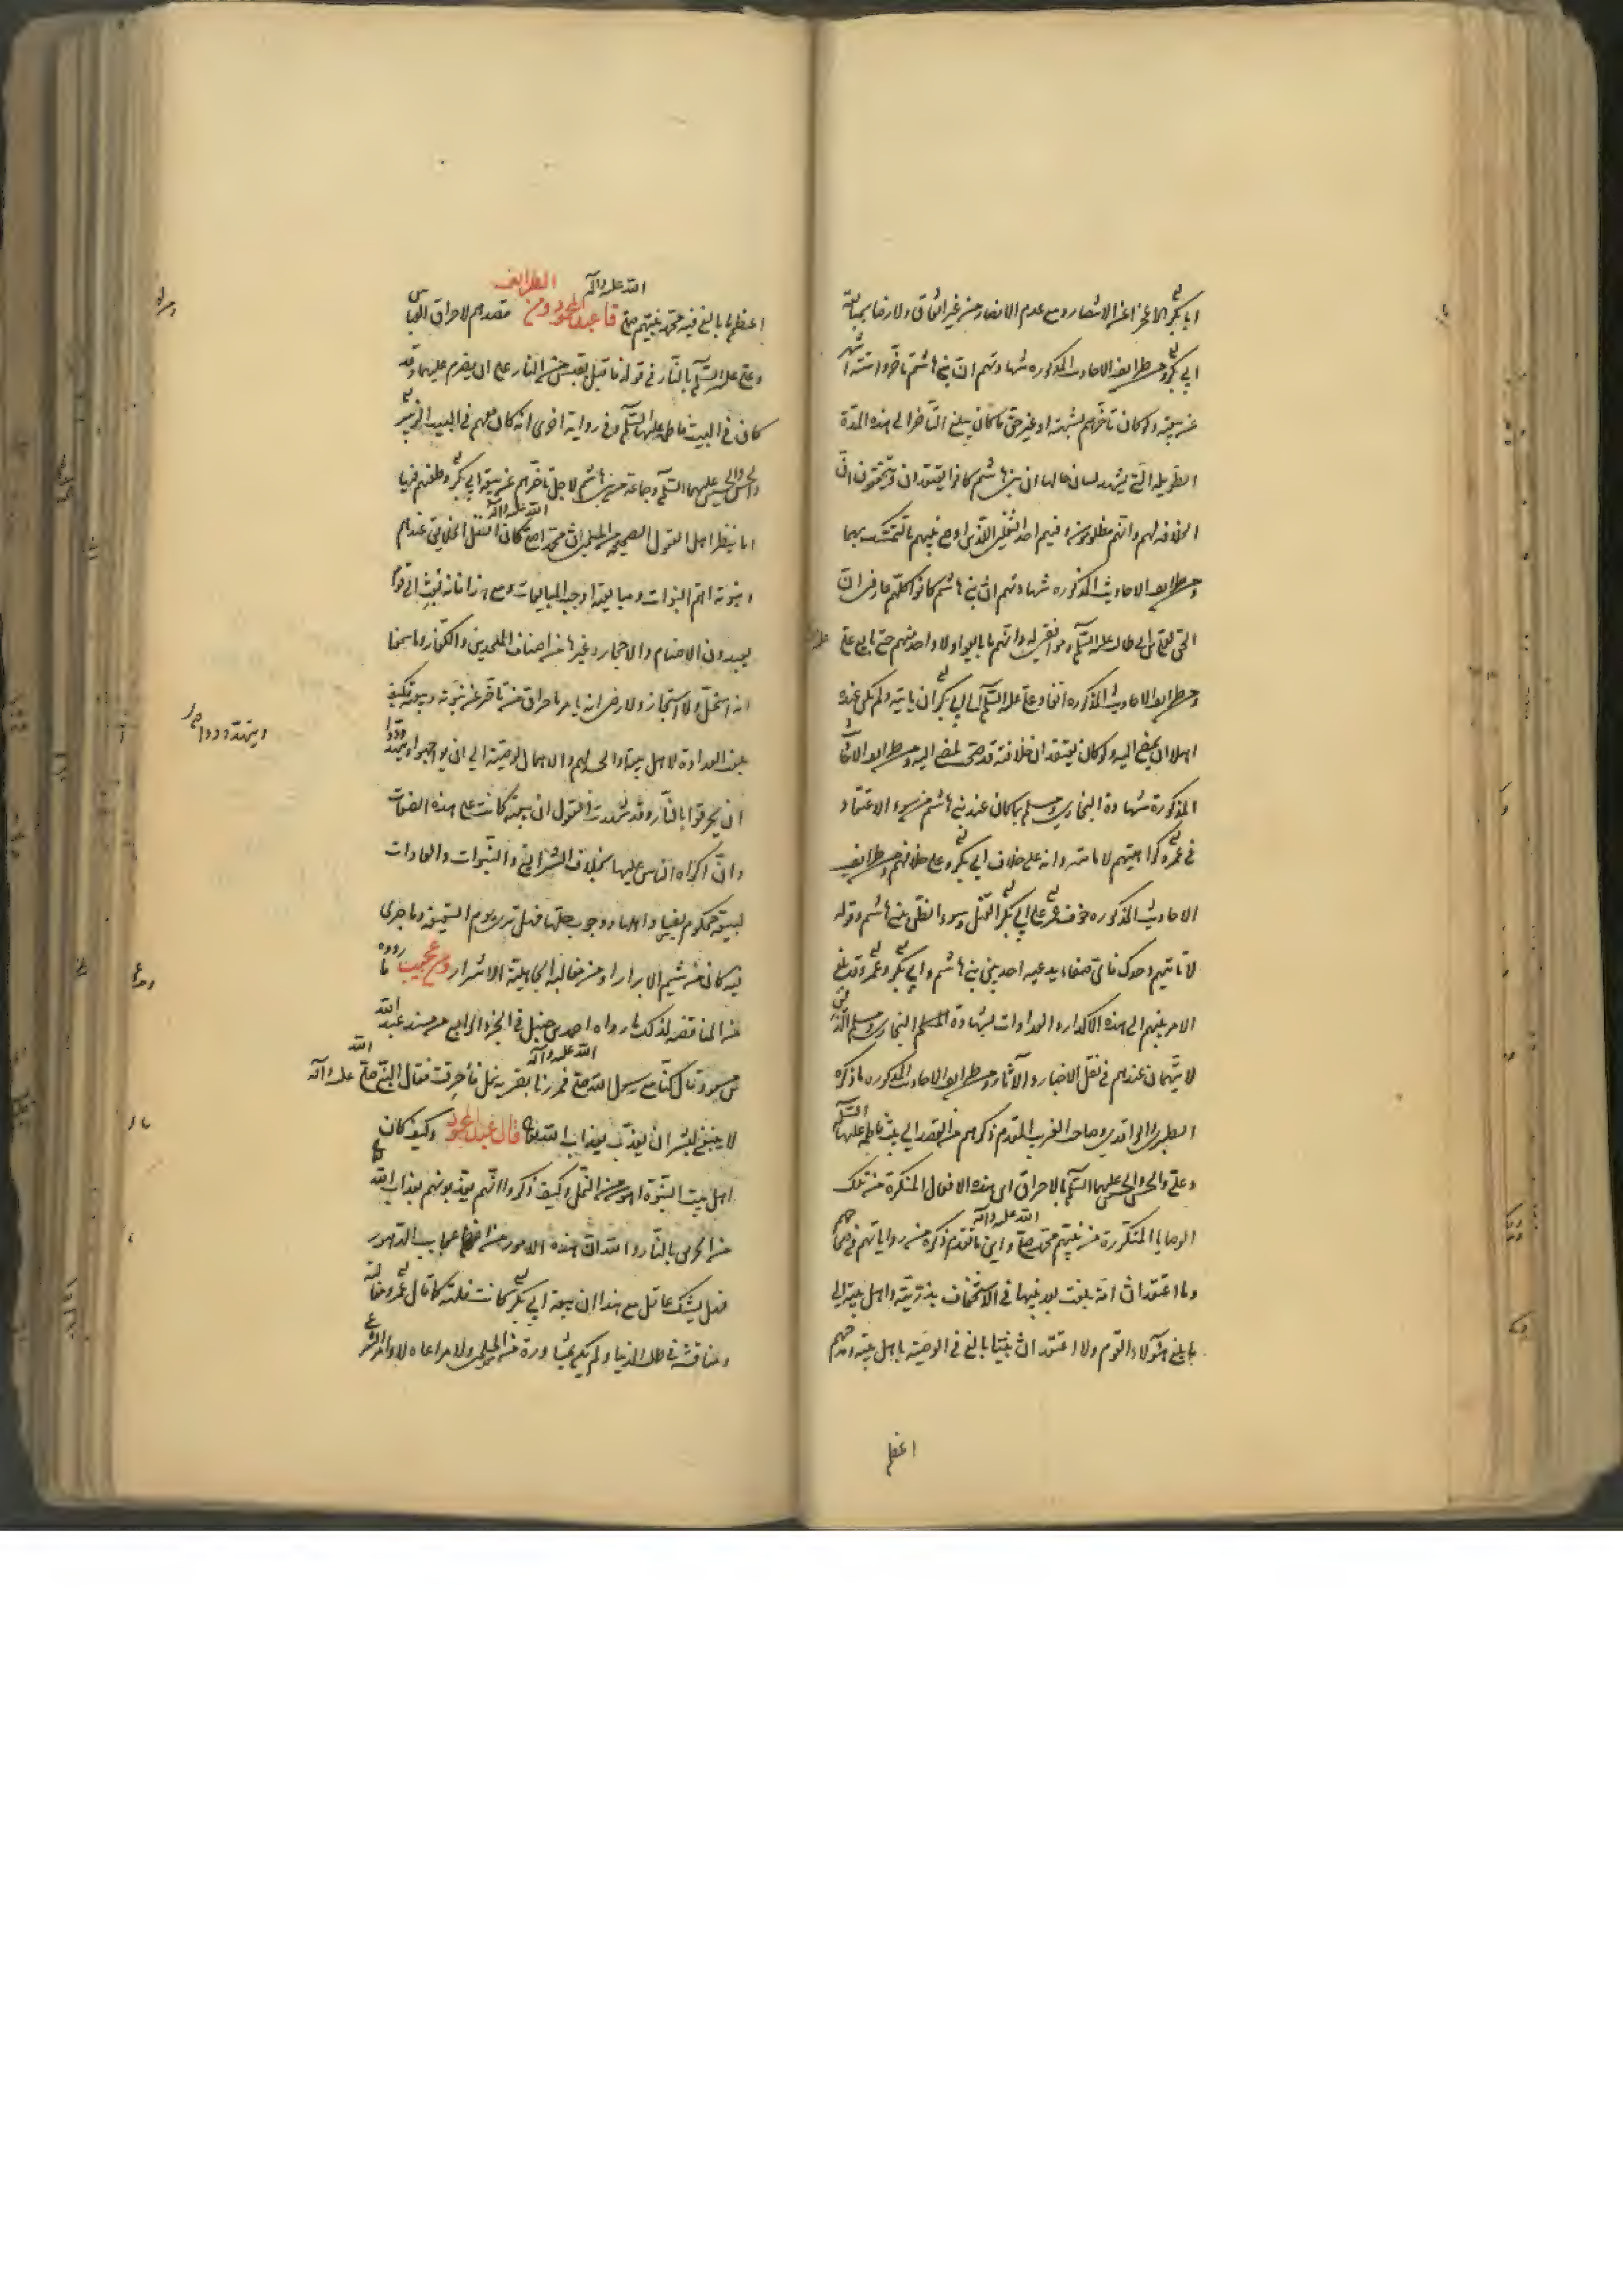 ابا بكر الا عجزا عن الانتصار ومع عدم الانصار ومن غير اتفاق ولا رضا بمبايعة
ابي بكر ومن طرايف الاحاديث المذكورة شهادتهم ان بني هاشم تأخروا ستة اشهر
عن بيعته ولو كان تأخرهم لشبهة او غير حق ما كان يبلغ التأخر الى هذه المدة
الطويلة التي يشهد لسان حالها ان بني هاشم كانوا يعتقدون ويتحققون ان
الخلافة لهم وانهم مظلومون وفيهم احد الثقلين اللذين اوصى نبيهم بالتمسك بهما
ومن طرايف الاحاديث المذكورة شهادتهم ان بني هاشم كانوا كلهم عارفين ان
الحق لعلي بن ابي طالب عليه السلم وموافقين له وانهم ما بايعوا ولا واحد منهم حتى بايع علي
ومن طرايف الاحاديث المذكورة انفاد علي عليه السلم الى ابي بكر ان ياتيه ولم يكن عنده
اهلا ان يمضي اليه ولو كان يعتقد ان خلافته قد صحت لمضى اليه ومن طرايف الاحاديث
المذكورة شهادة البخاري ومسلم بما كان عند بني هاشم من سوء الاعتقاد
في عمر وكراهيتهم لاتيانه وانه على خلاف ابي بكر وعلى خلافهم ومن طرايف
الاحاديث المذكورة خوف عمر على ابي بكر القتل وسوء الظن ببني هاشم وقوله
لا تأتيهم وحدك فاي صفاء يدعيه احد بين بني هاشم وابي بكر وعمر وقد بلغ
الامر بينهم الى هذه الاكدار والعداوات بشهادة البخاري ومسلم الذين
لا يتهمان عندهم في نقل الاخبار والآثار ومن طرايف الاحاديث المذكورة ما ذكره
الطبري والواقدي وصاحب الغرر المقدم ذكرهم من القصد الى بيت فاطمة عليها السلم
وعلي والحسن والحسين عليهما السلم بالاحراق اين هذه الافعال المنكرة من تلك
الوصايا المتكررة من نبيهم محمد صلى الله عليه وآله واين ما تقدم ذكره من رواياتهم في صحاحهم
وما اعتقد ان امة بلغت بعد نبيها في الاستخفاف بذريته واهل بيته الى
ما بلغ هؤلاء القوم ولا اعتقد ان نبيا بالغ في الوصية باهل بيته ومدحهم
اعظم
اعظم ما بالغ فيه محمد نبيهم صلى الله عليه وآله قال عبد المحمود ومن الطرايف قصدهم لاحراق العباس
وعلي عليه السلم بالنار في قوله فاقبل بقبس من النار على ان يضرم عليهما وقد
كان في البيت فاطمة عليها السلم وفي رواية اخرى انه كان معهم في البيت الزبير
والحسن والحسين عليهما السلم وجماعة من بني هاشم لاجل تأخرهم عن بيعة ابي بكر وطعنهم فيها
اما ينظر اهل العقول الصحيحة من المسلمين ان محمدا صلى الله عليه وآله كان افضل الخلايق عندهم
ونبوته اهم النبوات ومبايعته اوجب المبايعات ومع هذا فانه بعث الى قوم
يعبدون الاصنام والاحجار وغيرها من اصناف الملحدين والكفار وما سمعنا
انه استحل ولا استجاز ولا رضي ان يامر باحراق من تأخر عن نبوته وبيعته فكيف
بلغت العداوة لاهل بيته والحسد لهم والاهمال لوصيته الى ان يواجهوا ويتهددوا
ان يحرقوا بالنار وقد شهدت العقول ان بيعة كانت على هذه الصفات
وان اكراه الناس عليها بخلاف الشرايع والنبوات والعادات
ما
من المناقضة لذلك ما رواه احمد بن حنبل في الجزء الرابع من مسند عبد الله
بن مسعود قال كنا مع رسول الله صلى الله عليه وآله فمررنا بقرية نمل فأحرقت فقال النبي صلى الله عليه وآله
لا ينبغي لبشر ان يعذب بعذاب الله تعالى قال عبد المحمود وكيف كان
اهل بيت النبوة اهون من النمل وكيف ذكروا انهم يعذبونهم بعذاب الله
من الحريق بالنار والله ان هذه الامور من اعظم عجايب الدهور
فهل يشك عاقل مع هذا ان بيعة ابي بكر كانت فلتة كما قال عمر ومغالبة
ومنافسة في طلب الدنيا ولم يكن بمشاورة من المسلمين ولا مراعاة لاوامر الشرع